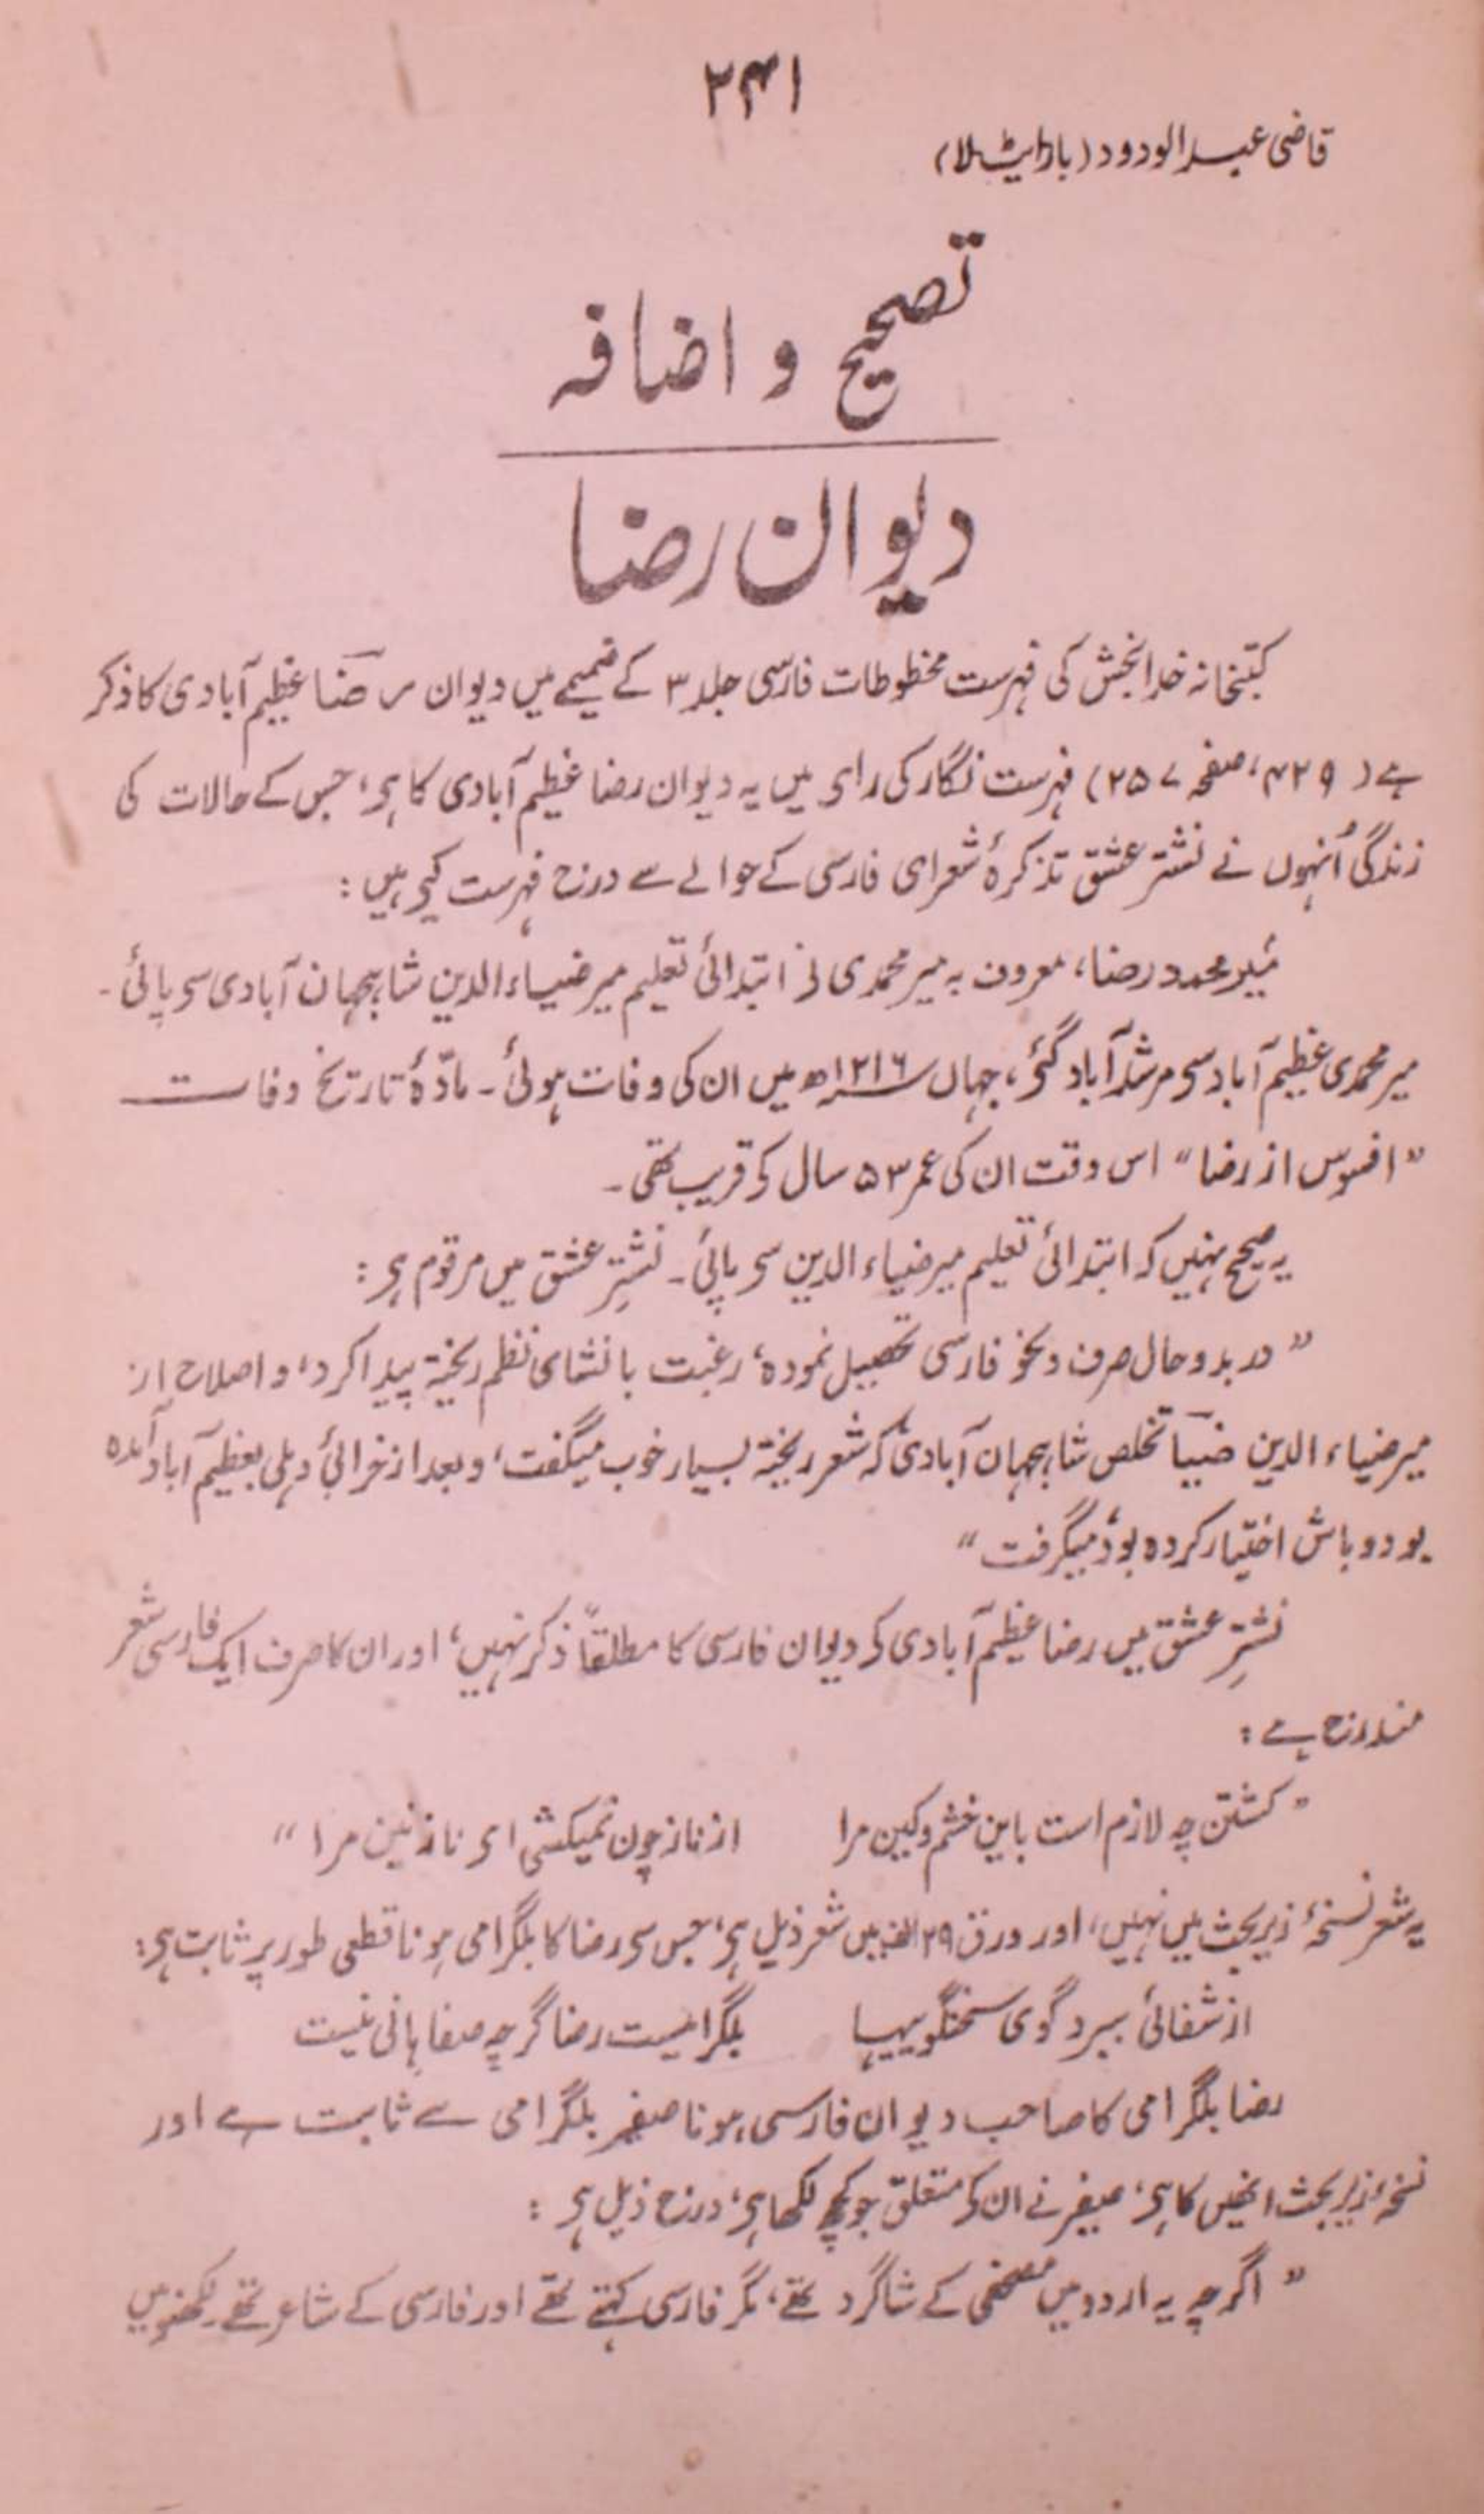 ۲۴۱
قاضی عبدالودود (بارایٹ لا)
تصحیح و اضافہ
دیوان رضا
کتبخانہ خدابخش کی فہرست مخطوطات فارسی جلد ۳ کے ضمیمے میں دیوان رضاؔ عظیم آبادی کا ذکر
ہے (۴۲۹، صفحہ ۲۵۷) فہرست نگار کی رای میں یہ دیوان رضا عظیم آبادی کا ہی، جس کے حالات کی
زندگی اُنہوں نے نشتر عشق تذکرۂ شعرای فارسی کے حوالے سے درج فہرست کیی ہیں:
میر محمد رضا، معروف بہ میر محمدی نی ابتدائی تعلیم میر ضیاء الدین شاہجہان آبادی سی پائی۔
میر محمدی عظیم آباد سی مرشد آباد گئی، جہاں ۱۲۱۶ھ میں ان کی وفات ہوئی۔ مادّۂ تاریخ وفات
"افسوس از رضا" اس وقت ان کی عمر ۵۳ سال کی قریب تھی۔
یہ صحیح نہیں کہ ابتدائی تعلیم میر ضیاء الدین سی پائی۔ نشترِ عشق میں مرقوم ہی:
"در بدو حال صرف و نحو فارسی تحصیل نمودہ، رغبت بانشای نظم ریختہ پیدا کرد، و اصلاح از
میر ضیاء الدین ضیاؔ تخلص شاہجہان آبادی کہ شعر ریختہ بسیار خوب میگفت، و بعد از خرابیٔ دہلی بعظیم آباد آمدہ
بود و باش اختیار کردہ بود، میگرفت"
نشترِ عشق میں رضا عظیم آبادی کی دیوان فارسی کا مطلقاً ذکر نہیں، اور ان کا صرف ایک فارسی شعر
مندرج ہے:
"کشتن چہ لازم است باین خشم و کین مرا از ناز چون نمیکشی ای نازنین مرا"
یہ شعر نسخۂ زیر بحث میں نہیں، اور ورق ۲۹ الف میں شعر ذیل ہی، جس سی رضا کا بلگرامی ہونا قطعی طور پر ثابت ہی:
از شفائی ببرد گوی سخنگوییہا بلگرامیست رضا گرچہ صفاہانی نیست
رضا بلگرامی کا صاحب دیوان فارسی ہونا صفیر بلگرامی سے ثابت ہے اور
نسخۂ زیر بحث انھیں کا ہی، صفیر نے ان کی متعلق جو کچھ لکھا ہی، درج ذیل ہی:
"اگرچہ یہ اردو میں مصحفی کے شاگرد تھے، مگر فارسی کہتے تھے اور فارسی کے شاعر تھے۔ لکھنؤ میں